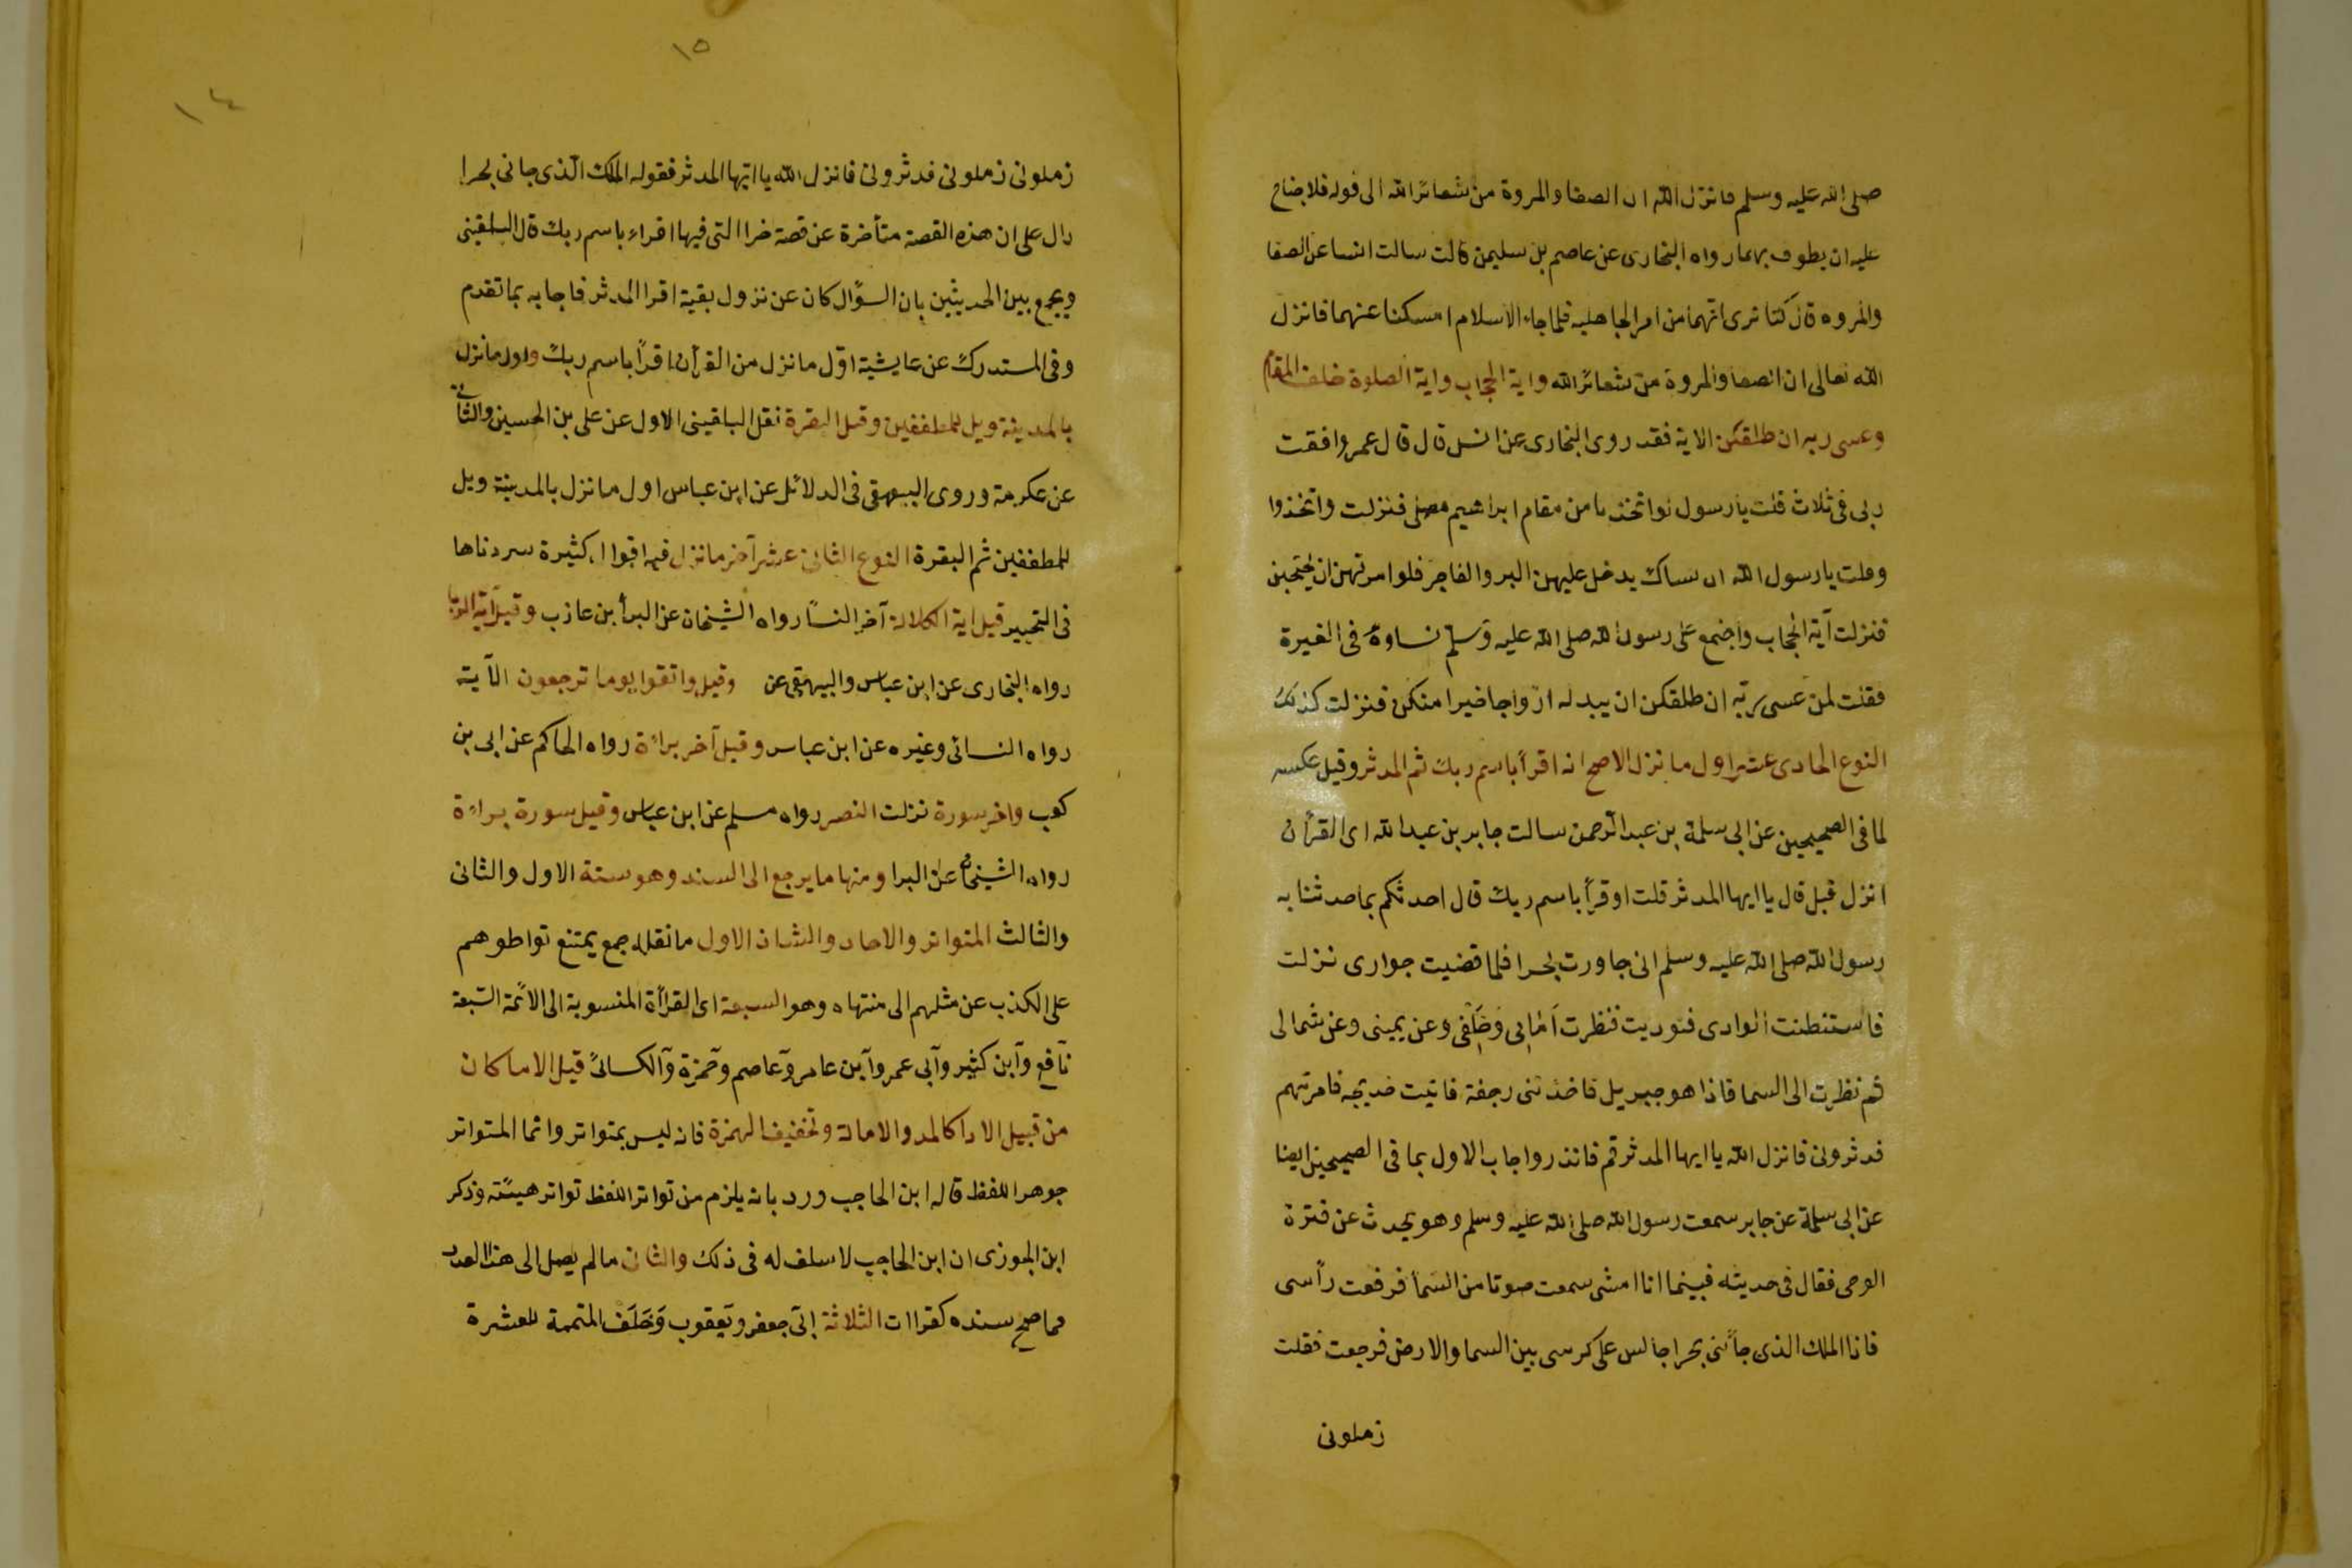 صلى الله عليه وسلم فانزل الله ان الصفا والمروة من شعائر الله الى قوله فلا جناح
عليه ان يطوف بهما رواه البخارى عن عاصم بن سليمن قالت سالت انسا عن الصفا
والمروه قال كنا نرى انهما من امر الجاهليه فلما جاء الاسلام امسكنا عنهما فانزل
الله تعالى ان الصفا والمروة من شعائر الله واية الحجاب واية الصلوة خلف المقام
وعسى ربه ان طلقكن الاية فقد روى البخارى عن انس قال قال عمر وافقت
ربى فى ثلاث قلت يا رسول لو اتخذنا من مقام ابراهيم مصلى فنزلت واتخذوا
وقلت يا رسول الله ان نساك يدخل عليهن البر والفاجر فلو امرتهن ان يحتجبن
فنزلت آية الحجاب واجتمع على رسول الله صلى الله عليه وسلم نساوه فى الغيرة
فقلت لهن عسى ربه ان طلقكن ان يبدله ازواجا خيرا منكن فنزلت كذلك
النوع الحادى عشر اول ما نزل الاصح انه اقرأ باسم ربك ثم المدثر وقيل عكسه
لما فى الصحيحين عن ابى سلمة بن عبد الرحمن سالت جابر بن عبد الله اى القرآن
انزل قبل قال يا ايها المدثر قلت او قرأ باسم ربك قال احدثكم بما حدثنا به
رسول الله صلى الله عليه وسلم انى جاورت بحرا فلما قضيت جوارى نزلت
فاستنطنت الوادى فنوديت فنظرت أمامى وخلفى وعن يمينى وعن شمالى
ثم نظرت الى السما فاذا هو جبريل فاخذتنى رجفة فاتيت خديجه فامرتهم
فدثرونى فانزل الله يا ايها المدثر قم فانذر واجاب الاول بما فى الصحيحين ايضا
عن ابى سلمة عن جابر سمعت رسول الله صلى الله عليه وسلم وهو يحدث عن فترة
الوحى فقال فى حديثه فبينما انا امشى سمعت صوتا من السمأ فرفعت رأسى
فاذا الملك الذى جأنى بحرا جالس على كرسى بين السما والارض فرجعت فقلت
زملونى
١٥
١٤
زملونى زملونى فدثرونى فانزل الله يا ايها المدثر فقوله الملك الذى جانى بحرا
دال على ان هذه القصة متأخرة عن قصة حرا التى فيها اقراء باسم ربك قال البلقينى
ويجمع بين الحديثين بان السؤال كان عن نزول بقية اقرا المدثر فاجابه بما تقدم
وفى المستدرك عن عايشية اول ما نزل من القرآن اقرأ باسم ربك واول ما نزل
بالمدينة ويل للمطففين وقيل البقرة نقل البلقينى الاول عن على بن الحسين والثانى
عن عكرمة وروى البيهقى فى الدلائل عن ابن عباس اول ما نزل بالمدينة ويل
للمطففين ثم البقرة النوع الثانى عشر آخر ما نزل فيه اقوال كثيرة سردناها
فى التحبير قيل اية الكلالة آخر النسأ رواه الشيخان عن البرأ بن عازب وقيل آية الربا
رواه البخارى عن ابن عباس والبيهقى عن وقيل واتقوا يوما ترجعون الآية
رواه النسائى وغيره عن ابن عباس وقيل آخر براءة رواه الحاكم عن ابى بن
كعب واخر سورة نزلت النصر رواه مسلم عن ابن عباس وقيل سورة براءة
رواه الشيخان عن البرا ومنها ما يرجع الى السند وهو ستة الاول والثانى
والثالث المتواتر والاحاد والشاذ الاول ما نقله جمع يمتنع تواطوهم
على الكذب عن مثلهم الى منتهاه وهو السبعة اى القرأة المنسوبة الى الائمة السبعة
نافع وابن كثير وابى عمر وابن عامر وعاصم وحمزة والكسائ قيل الا ما كان
من قبيل الادا كالمد والامالة وتخفيف الهمزة فانه ليس بمتواتر وانما المتواتر
جوهر اللفظ قاله ابن الحاجب ورد بانه يلزم من تواتر اللفظ تواتر هيئته وذكر
ابن الجوزى ان ابن الحاجب لا سلف له فى ذلك والثانى ما لم يصل الى هذا العدد
مما صح سنده كقراات الثلاثة ابى جعفر ويعقوب وخلف المتممة للعشرة